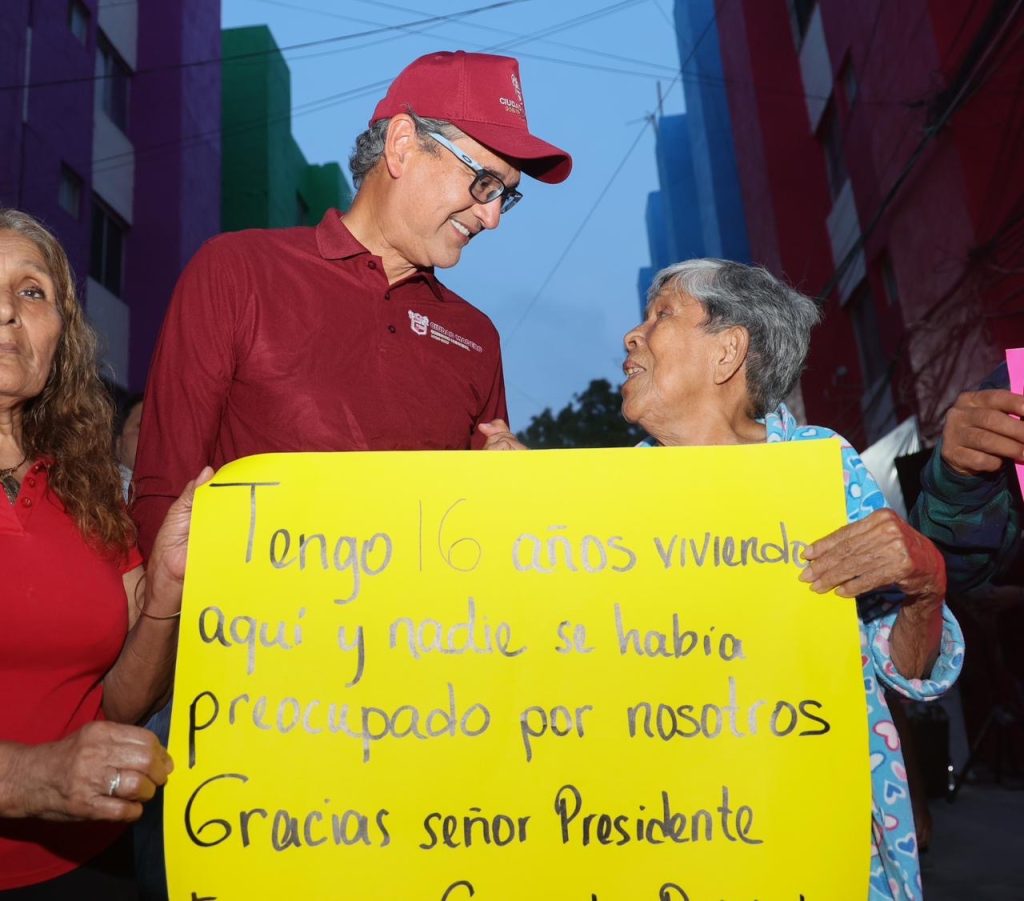 CIUDAD
CIUDAD MADERO
Tengo 16 años viviendo
aquí y nadie se había
preocupado por nosotros
Gracias señor Presidente